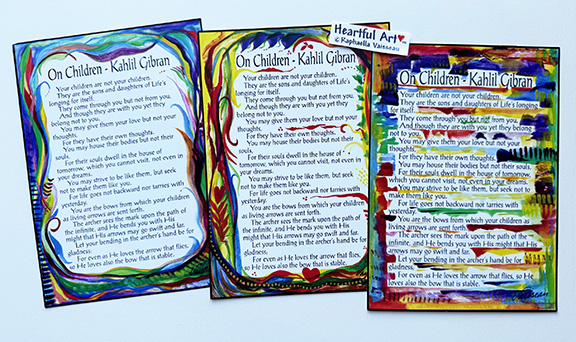 Heartful Art
© Raphaella Vaisseau
On Children - Kahlil Gibran
Your children are not your children.
They are the sons and daughters of Life's
longing for itself.
They come through you but not from you.
And though they are with you yet they
belong not to you.
You may give them your love but not your
thoughts.
For they have their own thoughts.
You may house their bodies but not their
souls.
For their souls dwell in the house of
tomorrow, which you cannot visit, not even in
your dreams.
You may strive to be like them, but seek
not to make them like you.
For life goes not backward nor tarries with
yesterday.
You are the bows from which your children
as living arrows are sent forth.
The archer sees the mark upon the path of
the infinite, and He bends you with His
might that His arrows may go swift and far.
Let your bending in the archer's hand be for
gladness.
For even as He loves the arrow that flies,
so He loves also the bow that is stable.
On Children - Kahlil Gibran
Your children are not your children.
They are the sons and daughters of Life's
longing for itself.
They come through you but not from you.
And though they are with you yet they
belong not to you.
You may give them your love but not your
thoughts.
For they have their own thoughts.
You may house their bodies but not their
souls.
For their souls dwell in the house of
tomorrow, which you cannot visit, not even in
your dreams.
You may strive to be like them, but seek
not to make them like you.
For life goes not backward nor tarries with
yesterday.
You are the bows from which your children
as living arrows are sent forth.
The archer sees the mark upon the path of
the infinite, and He bends you with His
might that His arrows may go swift and far.
Let your bending in the archer's hand be for
gladness.
For even as He loves the arrow that flies,
so He loves also the bow that is stable.
On Children - Kahlil Gibran
Your children are not your children.
They are the sons and daughters of Life's longing
for itself.
They come through you but not from you.
And though they are with you yet they belong
not to you.
You may give them your love but not your
thoughts.
For they have their own thoughts.
You may house their bodies but not their souls.
For their souls dwell in the house of tomorrow,
which you cannot visit, not even in your dreams.
You may strive to be like them, but seek not to
make them like you.
For life goes not backward nor tarries with
yesterday.
You are the bows from which your children as
living arrows are sent forth.
The archer sees the mark upon the path of the
infinite, and He bends you with His might that His
arrows may go swift and far.
Let your bending in the archer's hand be for
gladness.
For even as He loves the arrow that flies, so He
loves also the bow that is stable.